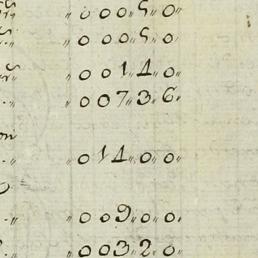 „ 0 0 0 „ 5 „ 0 „
„ 0 0 0 „ 5 „ 0 „
„ 0 0 1 „ 4 „ 0 „
„ 0 0 7 „ 3 „ 6 „
„ 0 1 4 „ 0 „ 0 „
„ 0 0 9 „ 0 „ 0 „
„ 0 0 3 „ 2 „ 0 „